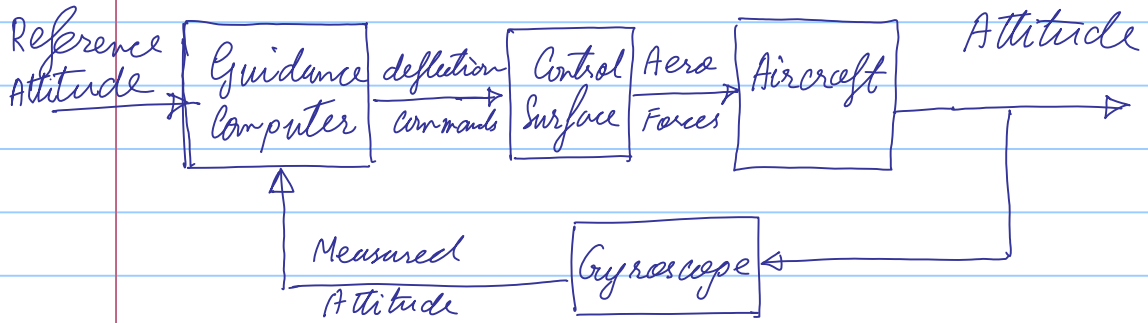 Reference
Attitude
Guidance
Computer
deflection
Commands
Control
Surface
Aero
Forces
Aircraft
Attitude
Measured
Attitude
Gyroscope